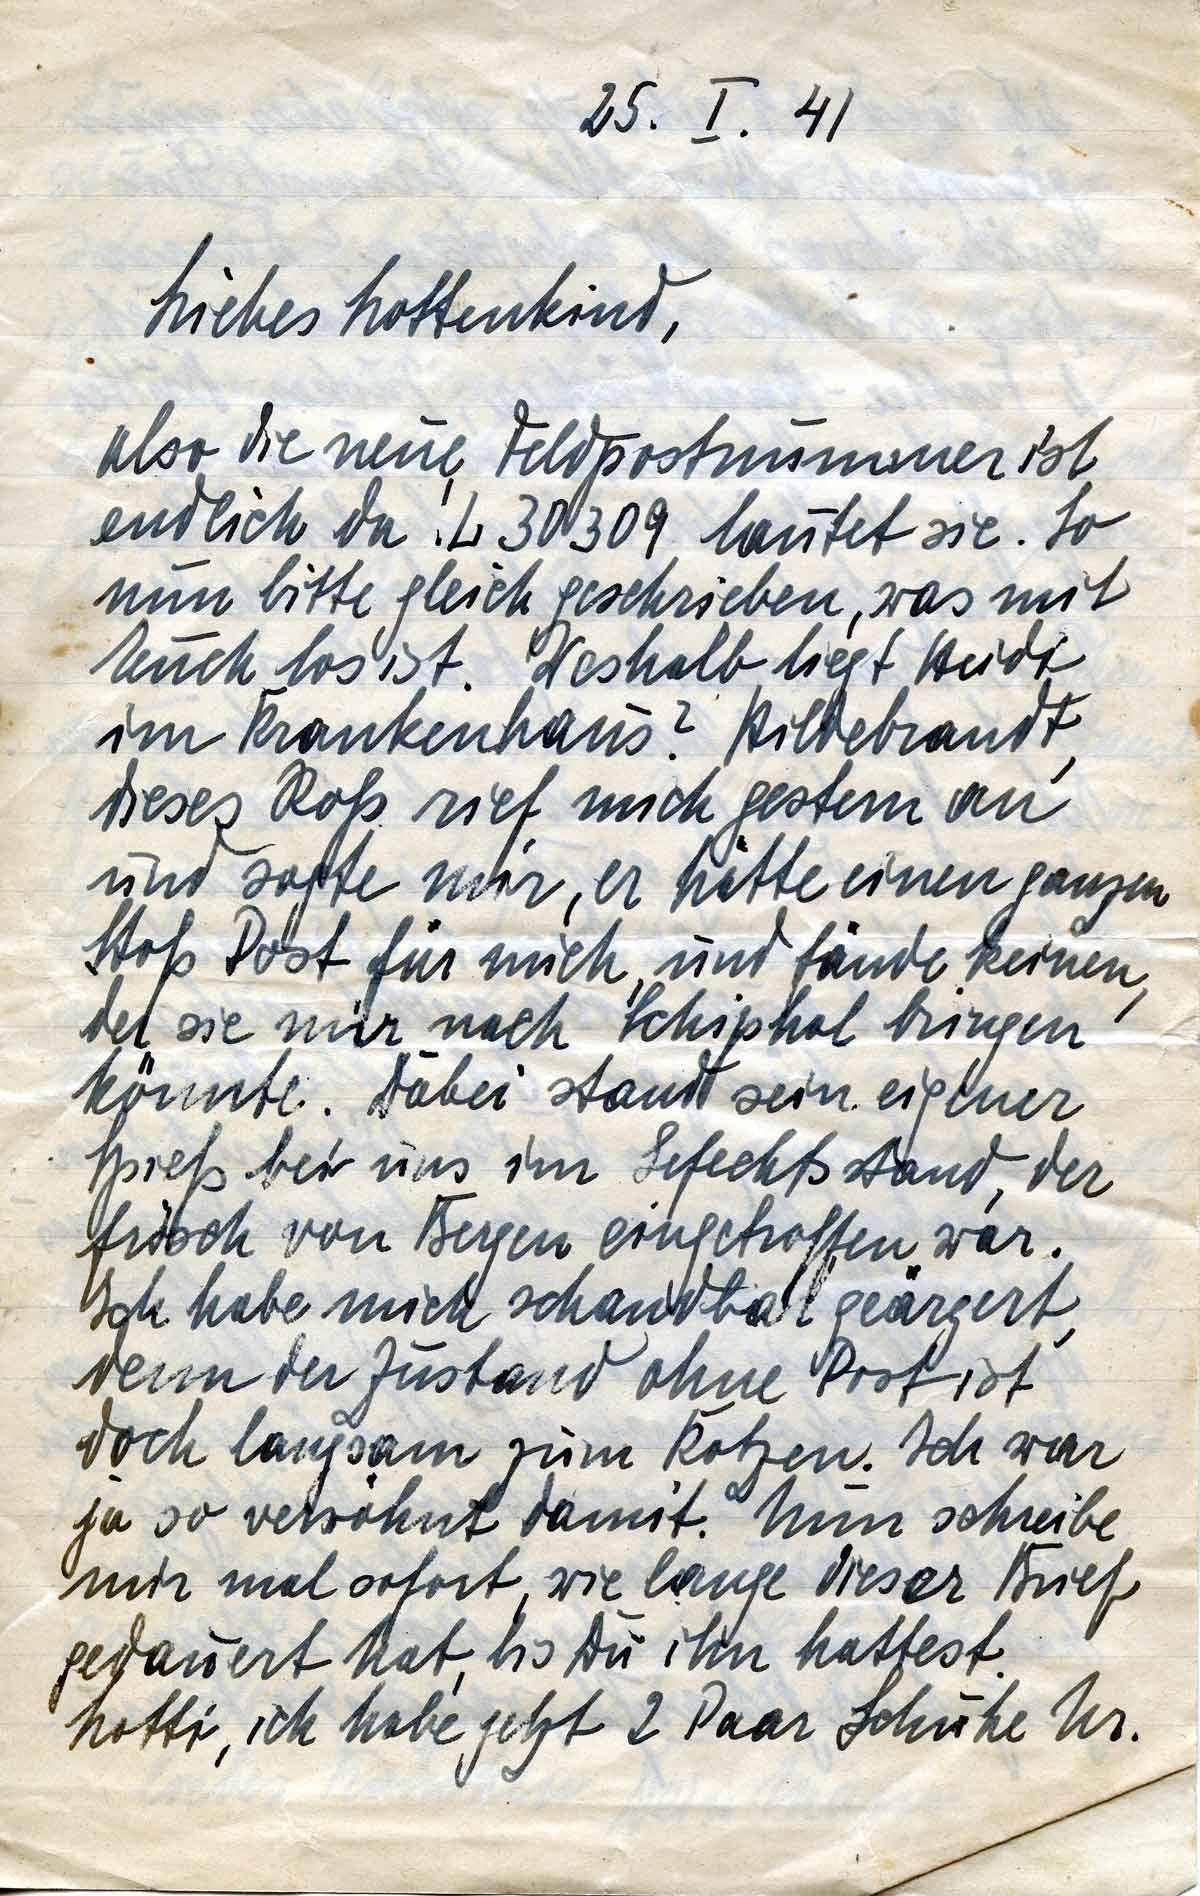 25. I. 41
Liebes Lottenkind,
also die neue Feldpostnummer ist
endlich da: L 30309 lautet sie. So
nun bitte gleich geschrieben, was mit
Euch los ist. Weshalb liegt Heidi
im Krankenhaus? Hildebrandt,
dieses Roß rief mich gestern an
und sagte mir, er hätte einen ganzen
Stoß Post für mich, und fände keinen,
der sie mir nach Schiphol bringen
könnte. Dabei stand sein eigener
Spieß bei uns im Gefechtsstand, der
frisch von Bergen eingetroffen war.
Ich habe mich schandbar geärgert,
denn der Zustand ohne Post ist
doch langsam zum Kotzen. Ich war
ja so verwöhnt damit. Nun schreibe
mir mal sofort, wie lange dieser Brief
gedauert hat, bis Du ihn hattest.
Lotti, ich habe jetzt 2 Paar Schuhe Nr.